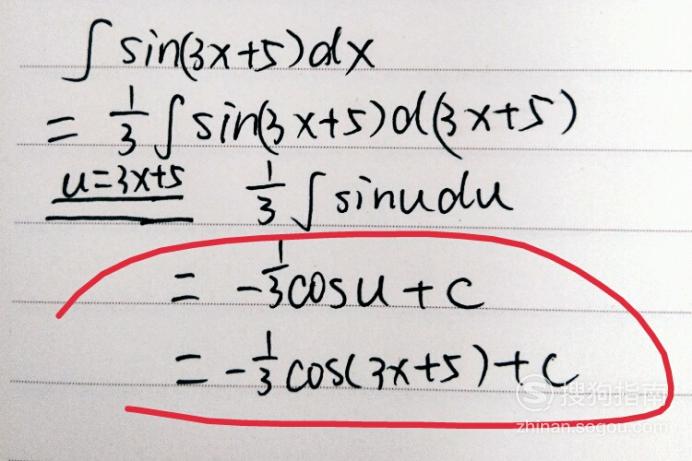 ∫ sin(3x+5)dx
= 1/3 ∫ sin(3x+5)d(3x+5)
u=3x+5 1/3 ∫ sinudu
= -1/3 cosu + c
= -1/3 cos(3x+5) + c
搜狗指南
zhinan.sogou.com